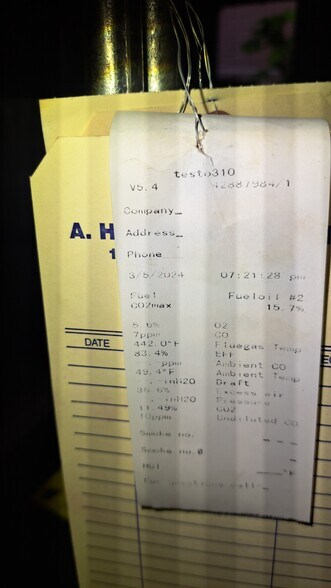 testo310
V5.4 42887984/1
Company_
Address_
Phone
3/5/2024 07:21:28 pm
Fuel Fueloil #2
CO2max 15.7%
5.6% O2
7ppm CO
442.0°F Fluegas Temp
83.4% EFF
ppm Ambient CO
49.4°F Ambient Temp
. inH2O Draft
Excess air
. inH2O Pressure
11.49% CO2
10ppm Undiluted CO
Smoke no. _ _ _
Smoke no.0 _
°F
For questions call:
A. H
DATE